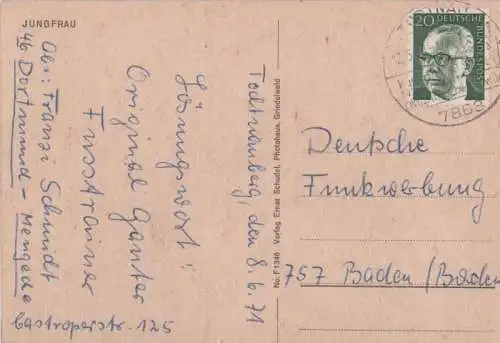 JUNGFRAU
Abs: Franzi Schmidt
46 Dortmund - Mengede
Castroperstr. 125
Lösungswort:
Original Ganter
Fusstrainer
Todtnauberg, den 8.6.71
No. F 1346 Verlag Ernst Schudel, Photohaus, Grindelwald
20 DEUTSCHE BUNDESPOST
7868
Deutsche
Funkwerbung
757 Baden/Baden